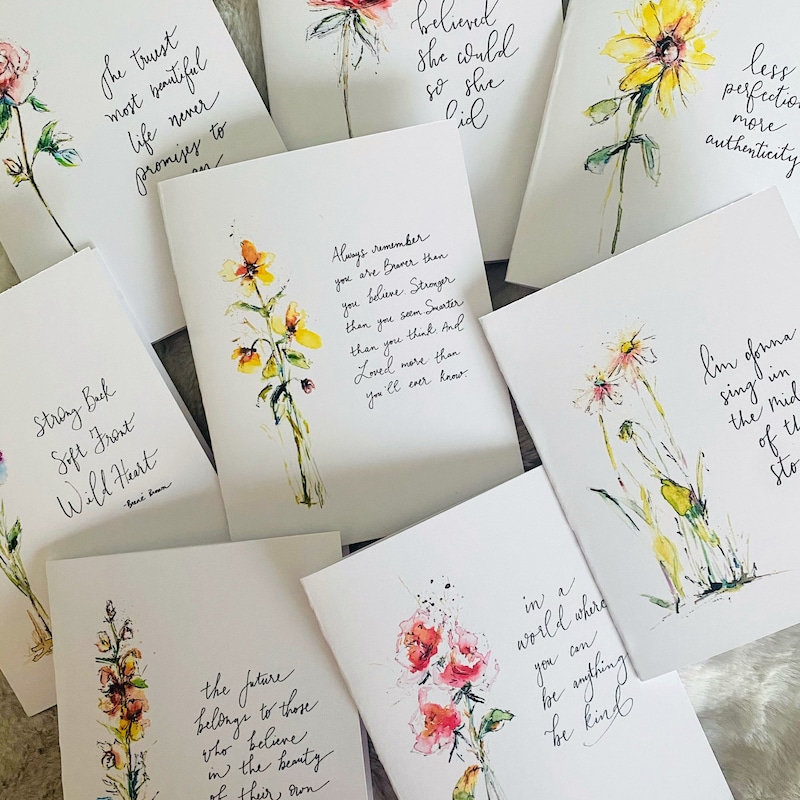 The truest
most beautiful
life never
promises to
believed
she could
so she
did
less
perfection
more
authenticity
Always remember
you are Braver than
you believe. Stronger
than you seem. Smarter
than you think. And
Loved more than
you'll ever know.
I'm gonna
sing in
the mid
of th
sto
Strong Back
Soft Front
Wild Heart
-Brené Brown
the future
belongs to those
who believe
in the beauty
of their own
in a
world where
you can
be anything
be kind